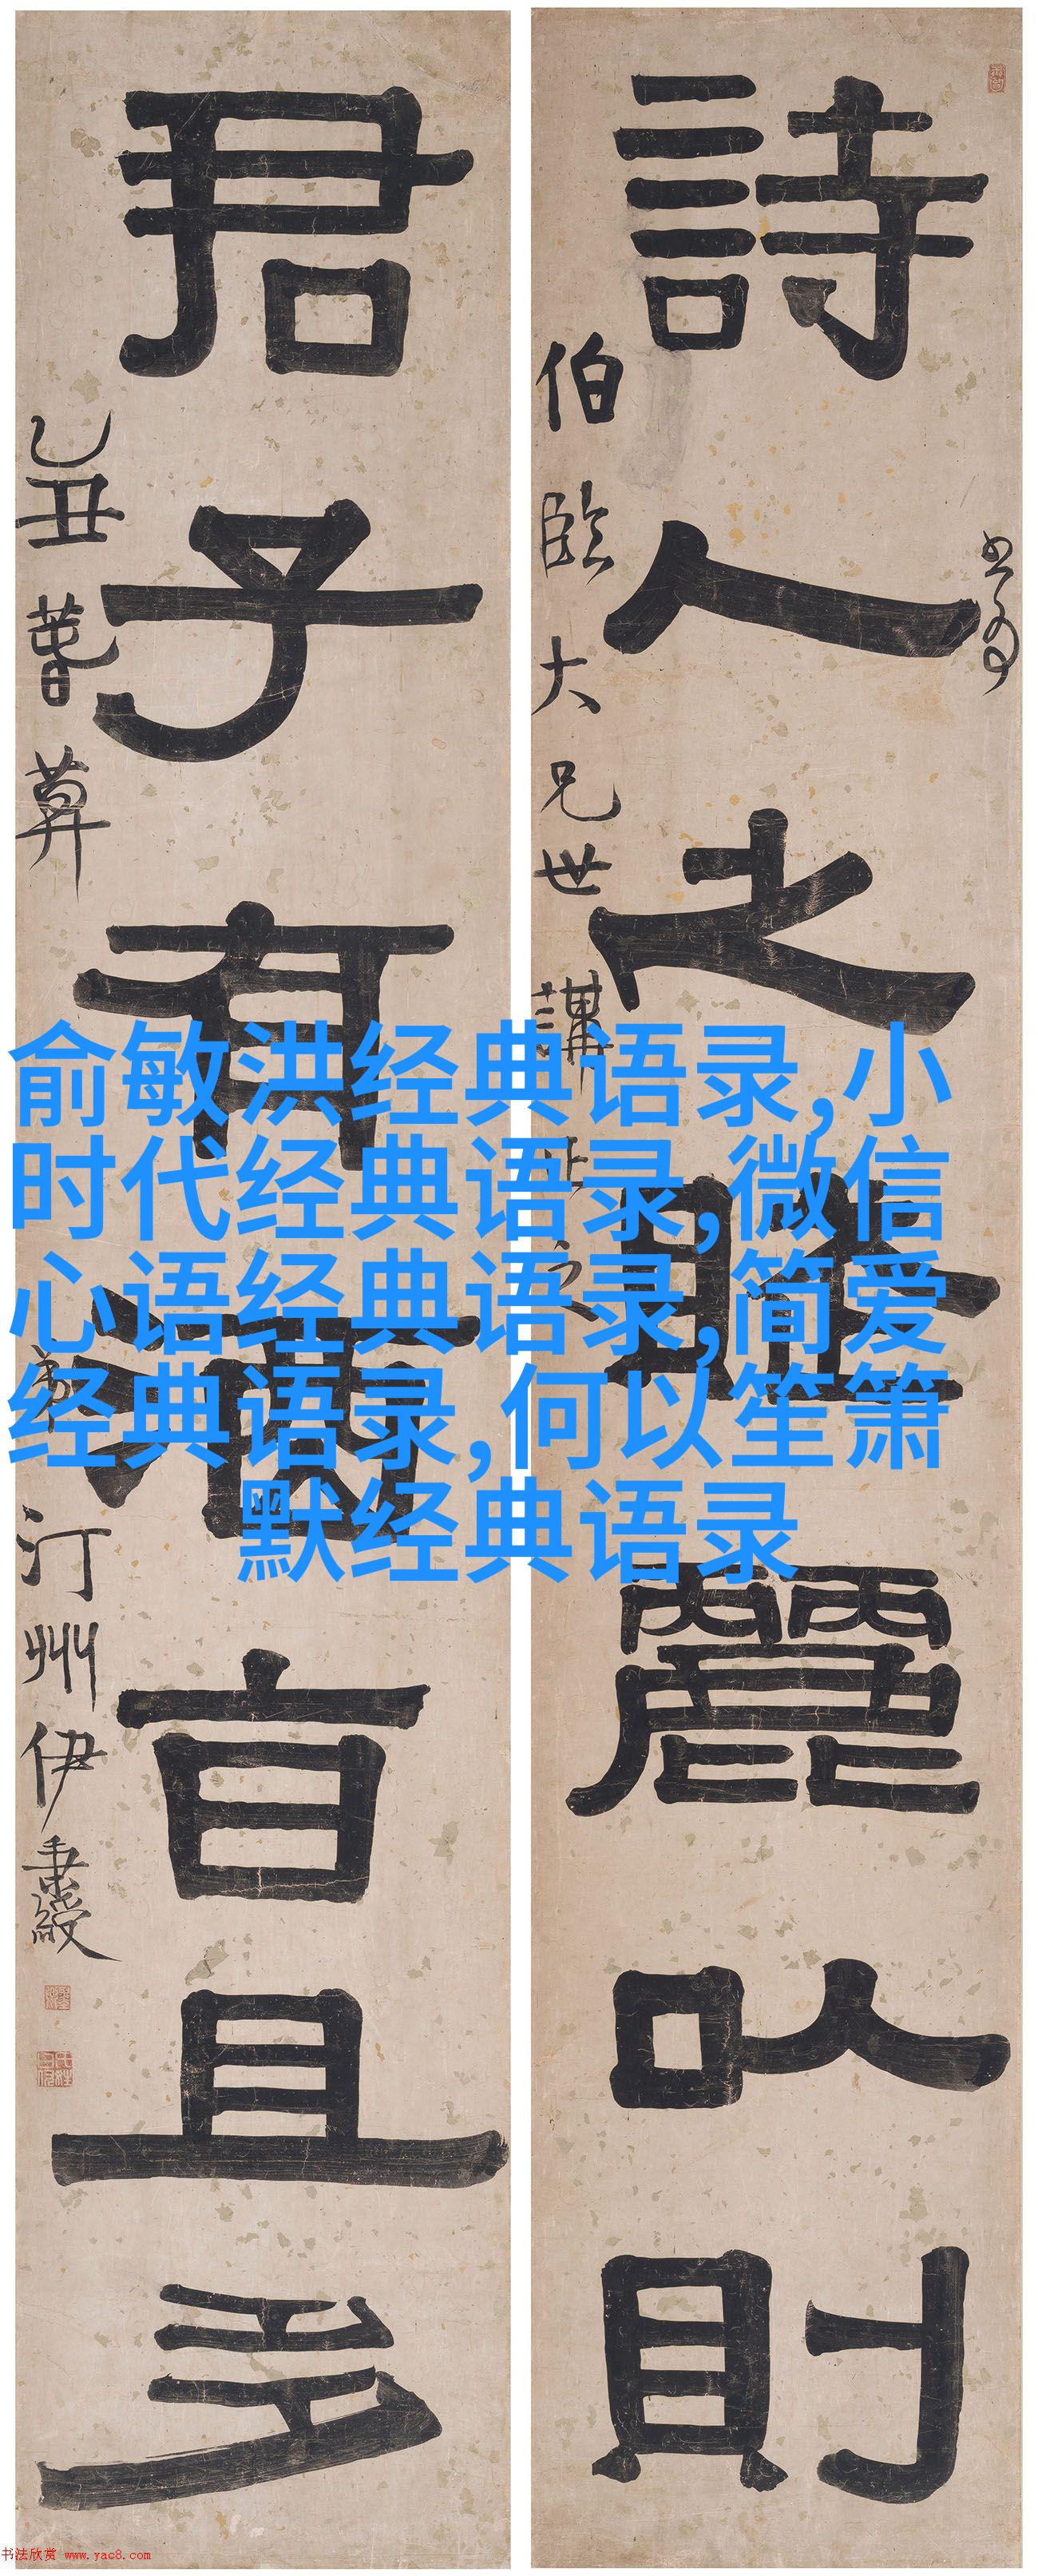 書為
詩人之
麗以則
伯臨大兄世講
君子有
旨且多
乙丑
汀州伊秉綬
俞敏洪经典语录,小
时代经典语录,微信
心语经典语录,简爱
经典语录,何以笙箫
默经典语录
书法欣赏 www.yac8.com